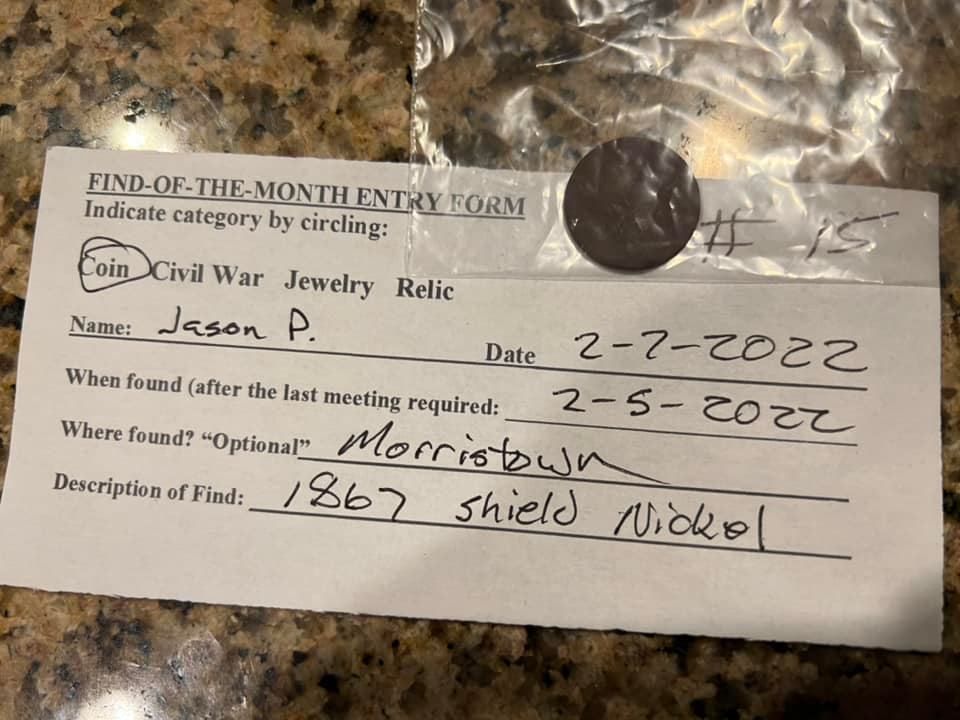 FIND-OF-THE-MONTH ENTRY FORM
Indicate category by circling:
# 15
Coin Civil War Jewelry Relic
Name: Jason P.
Date 2-7-2022
When found (after the last meeting required: 2-5-2022
Where found? “Optional” Morristown
Description of Find: 1867 shield Nickel